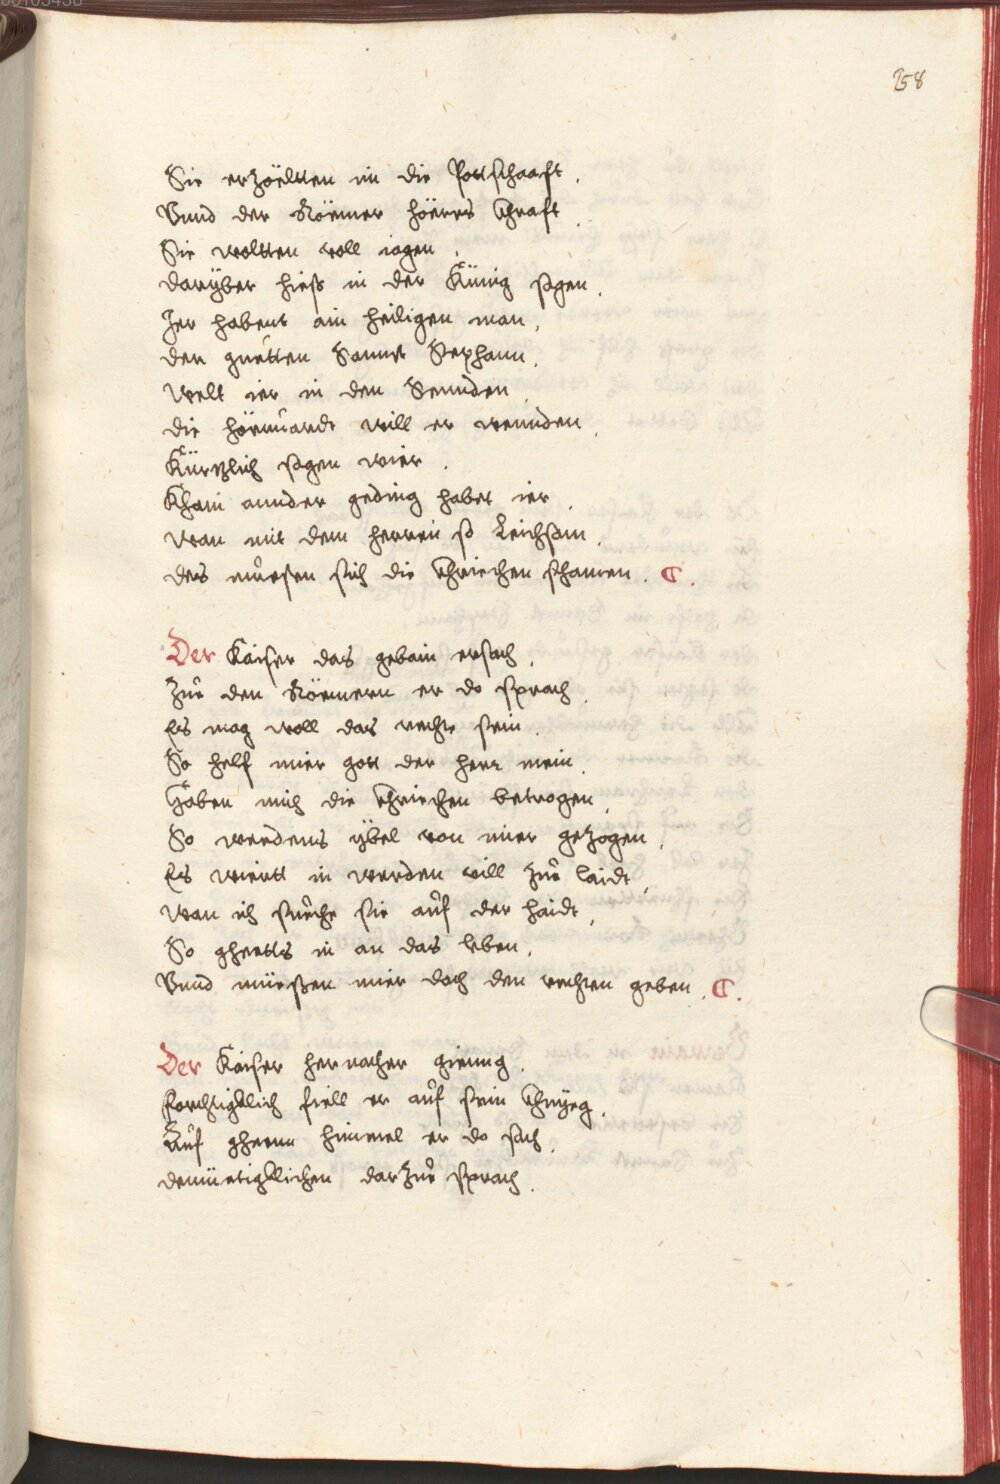 258
Sie erzöeltten im die Pottschaaft .
Vnnd der Röemer höerrs Chraft
Sie woltten woll iagen .
daryber hiess in der Künig sagen .
Jer habent ain heiligen man .
den guetten Sannt Stephann .
Welt ier in den Sennden .
die höeruardt will er wennden .
Kürtzlich sagen wier .
Khain annder geding habet ier .
wan mit dem herren so Leichsam .
des müesen sich die Chriechen schamen . C .
Der Kaiser das gebain ersach .
Zue den Röemern er do sprach .
Es mag woll das recht sein .
So helf mier gott der herr mein .
Haben mich die Chriechen betrogen .
So werdens ybel von mier gezogen .
Es wiertt in werden vill zue laidt .
wan ich sueche sie auf der haidt .
So gheetts in an das leben .
Vnnd müessen mier doch den rechten geben . C .
Der Kaiser her nacher gieng .
forchtigklich fiell er auf sein Chnyeg .
Auf gheenn himmel er do sach .
demüetigklichen darzue sprach .